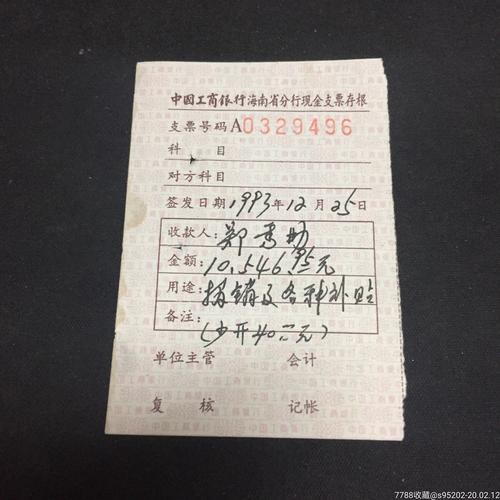 中国工商银行海南省分行现金支票存根
支票号码A0329496
科 目
对方科目
签发日期1993年12月25日
收款人：郑
金额：10,546.95元
用途：报销及各种补贴
备注：(少开40.00元)
单位主管 会计
复 核 记帐
7788收藏@s95202-20.02.12